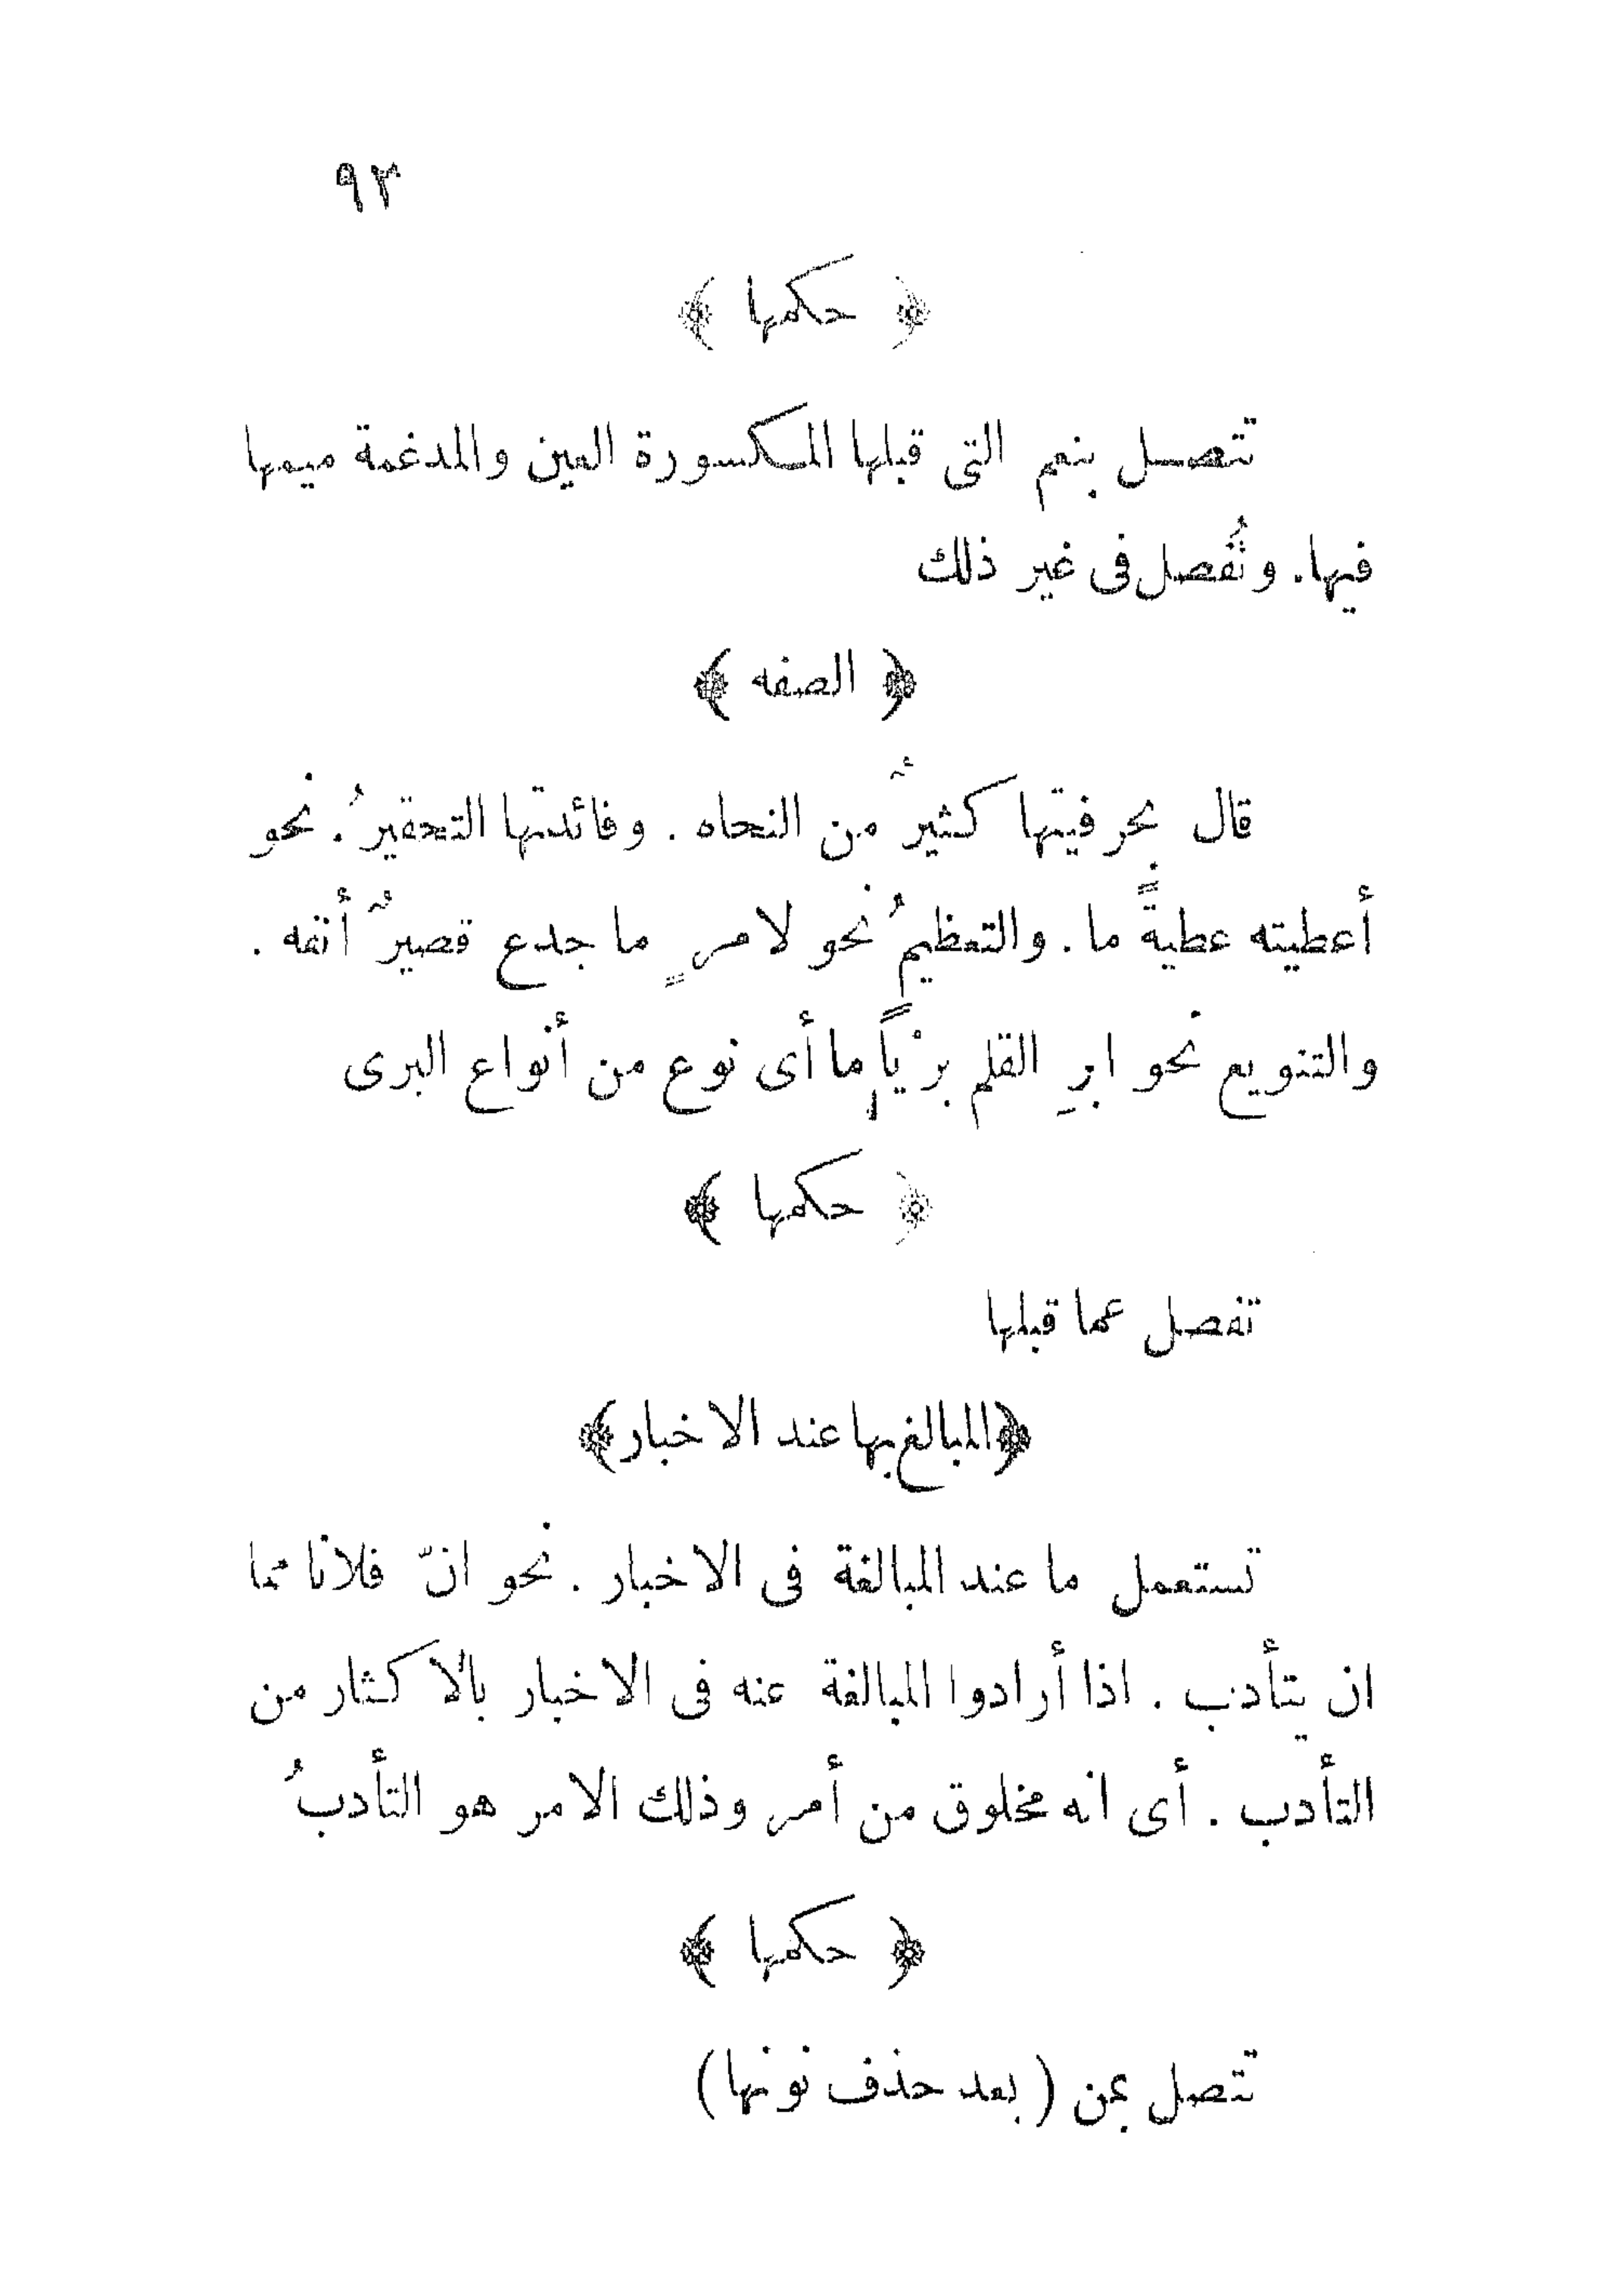 ٩٣
﴿ حكمها ﴾
تتصل بنعم التى قبلها المكسورة العين والمدغمة ميمها
فيها. وتُفصل فى غير ذلك
﴿ الصفه ﴾
قال بحرفيتها كثيرٌ من النحاه . وفائدتها التحقيرُ. نحو
أعطيته عطيةً ما. والتعظيمُ نحو لامرٍ ما جدع قصيرٌ أنفه .
والتنويع نحو ابرِ القلم برْياً ما أى نوع من أنواع البرى
﴿ حكمها ﴾
تفصل عما قبلها
﴿المبالغ بها عند الاخبار﴾
تستعمل ما عند المبالغة فى الاخبار . نحو انّ فلانا مما
ان يتأدب . اذا أرادوا المبالغة عنه فى الاخبار بالاكثار من
التأدب . أى انه مخلوق من أمر وذلك الامر هو التأدبُ
﴿ حكمها ﴾
تتصل بمن ( بعد حذف نونها )